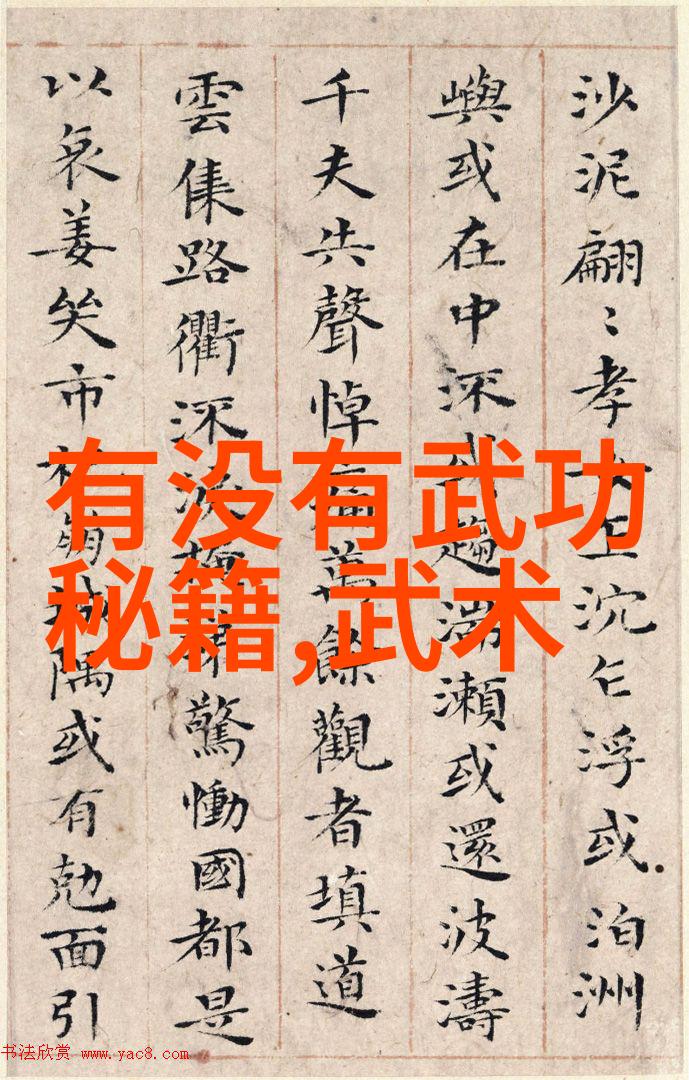 沙泥翩〻孝女乍沉乍浮或泊洲
嶼或在中深或趨湍瀨或還波濤
千夫共聲悼萬餘觀者填道
雲集路衢深淚驚慟國都是
以哀姜哭市杞崩城隅或有尅面引
有没有武功
秘籍,武术
书法欣赏 www.yac8.com